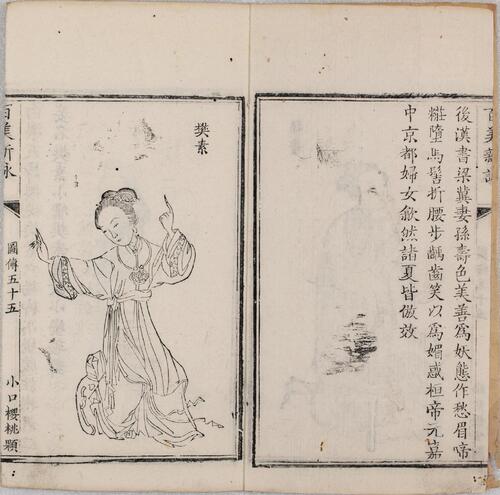 百美新詠
後漢書梁冀妻孫壽色美善爲妖態作愁眉啼
糚墮馬髻折腰步齲齒笑以爲媚惑桓帝元嘉
中京都婦女歙然諸夏皆倣效
樊素
百美新詠
圖傳五十五
小口櫻桃顆